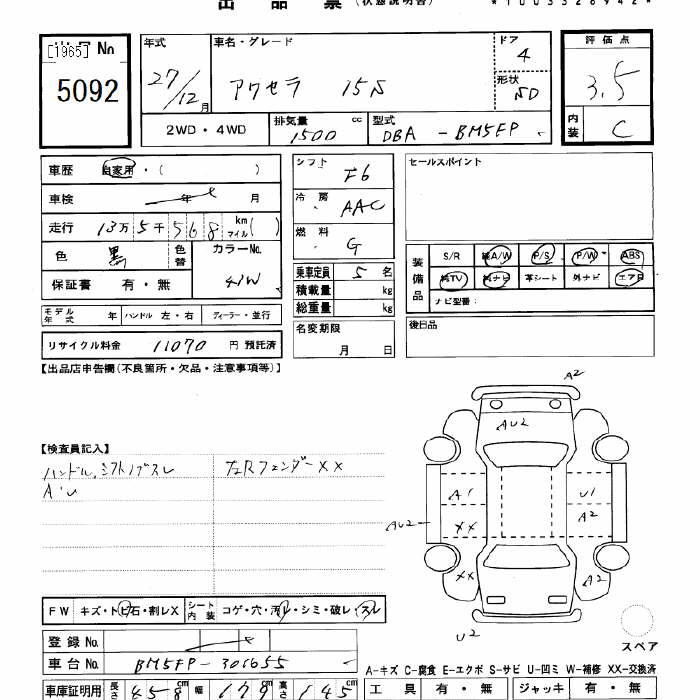 出品票 (状態説明書)
[1965] No
5092
年式 27/12月
車名・グレード アクセラ 15S
ドア 4
形状 SD
評価点 3.5
内装 C
2WD・4WD
排気量 1500 cc
型式 DBA - BM5FP
車歴 自家用・( )
車検 年 月
走行 13万5千568 km マイル ( )
色 黒 色替 カラーNo. 41W
保証書 有・無
シフト F6
冷房 AAC
燃料 G
乗車定員 5 名
積載量 kg
総重量 kg
名変期限 月 日
セールスポイント
装備品 S/R 純A/W P/S P/W ABS
純TV 純ナビ 革シート 外ナビ エアB
ナビ型番:
後日品
モデル年式 年 ハンドル 左・右 ディーラー・並行
リサイクル料金 11070 円 預託済
【出品店申告欄(不良箇所・欠品・注意事項等)】
【検査員記入】
ハンドル、シフトノブスレ
A・U
左Rフェンダー××
A2
AU2
A1
U1
A2
AU2
××
××
A2
U2
スペア
FW キズ・トビ石・割レX シート内装 コゲ・穴・汚レ・シミ・破レ・スレ
登録No.
車台No. BM5FP-301655
A-キズ C-腐食 E-エクボ S-サビ U-凹ミ W-補修 XX-交換済
車庫証明用 長さ 458 cm 幅 179 cm 高さ 145 cm
工具 有・無 ジャッキ 有・無